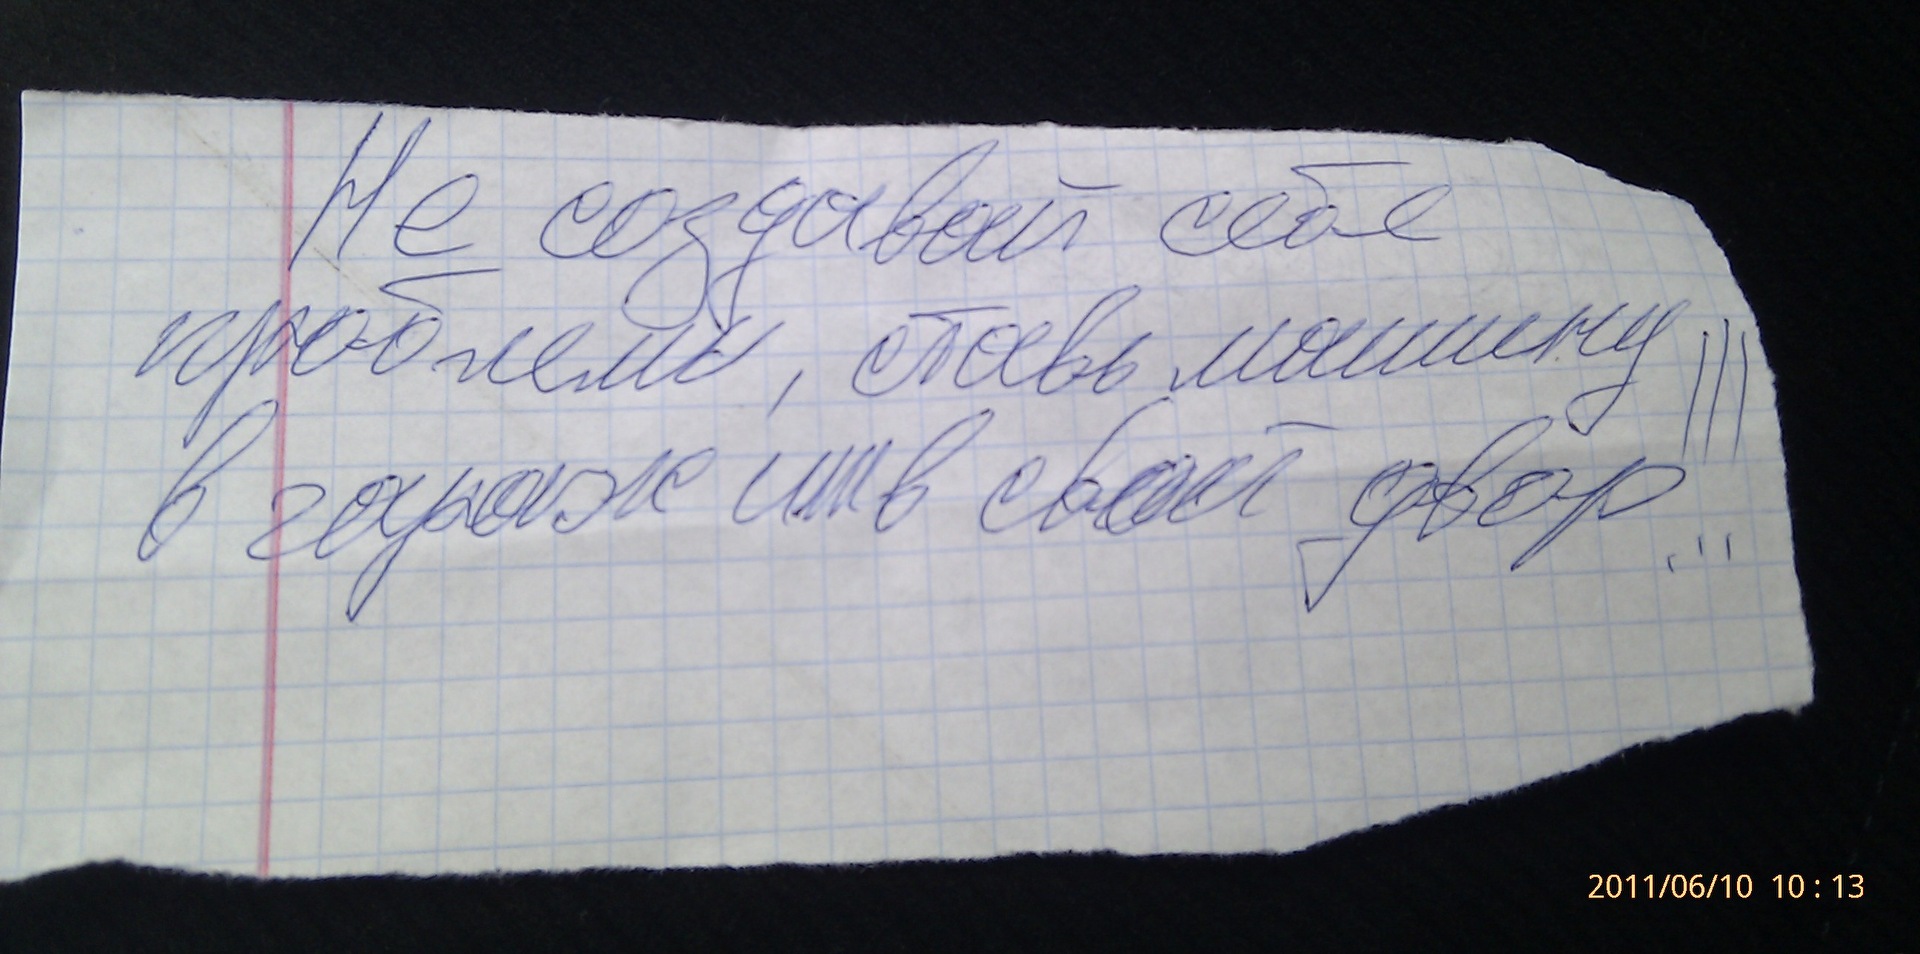 Не создавай себе
проблемы, ставь машину
в гараж или в свой двор!!!
2011/06/10 10:13